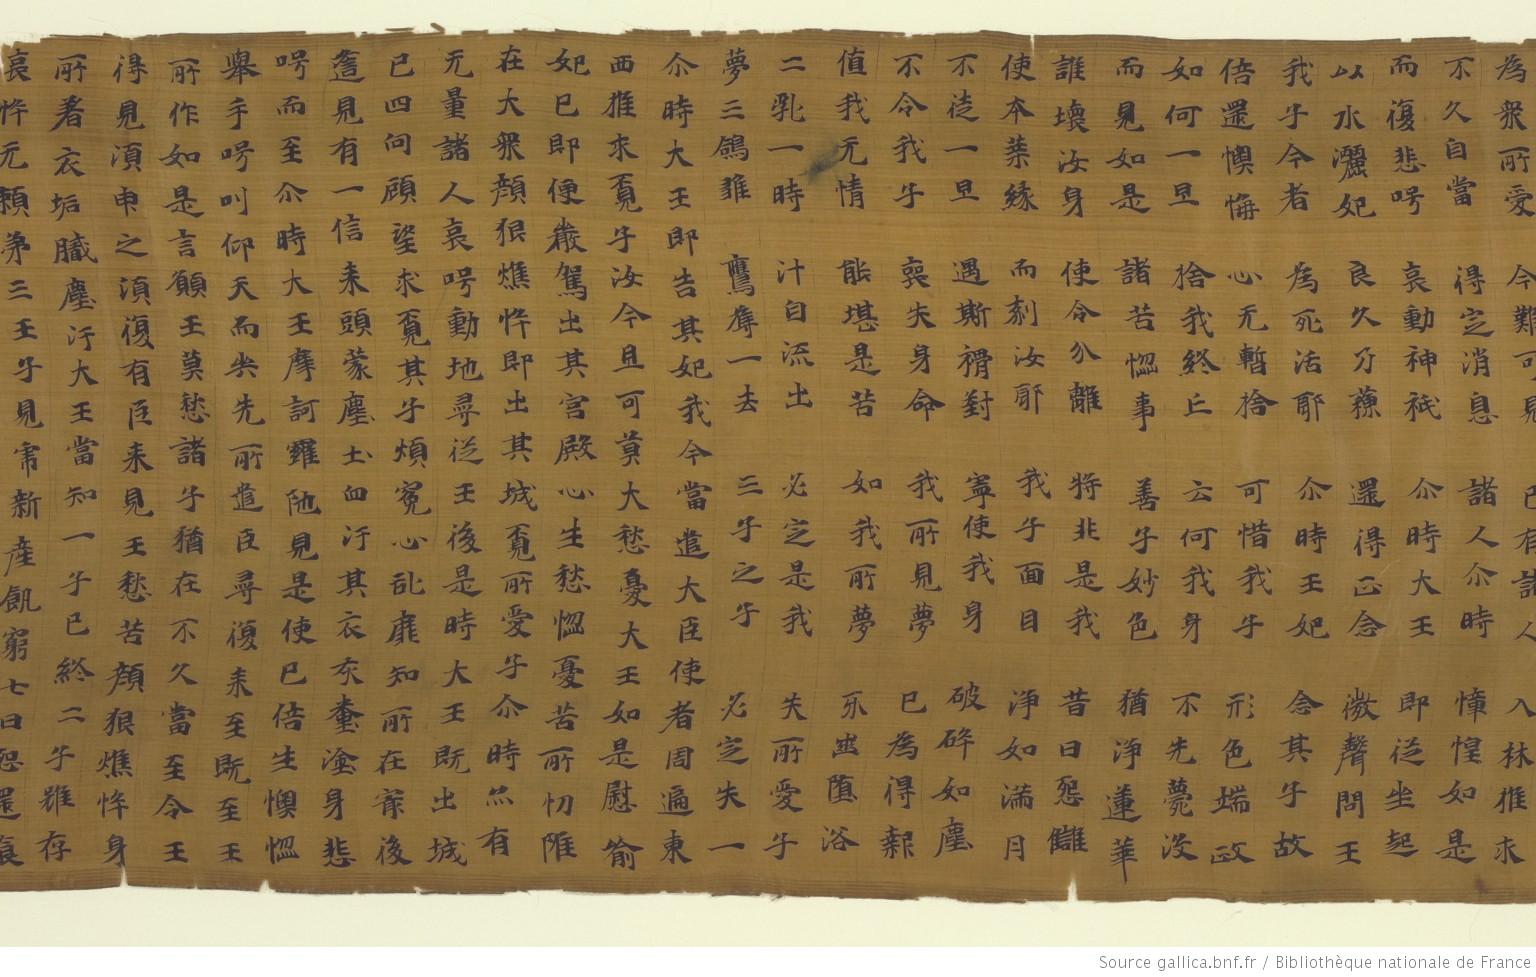 為衆所愛 今難可見 已有諸人 入林推求
不久自當 得定消息 諸人尒時 慞惶如是
而復悲号 哀動神祇 尒時大王 即從坐起
以水灑妃 良久乃蘇 還得正念 微聲問王
我子今者 為死活耶 尒時王妃 念其子故
倍還懊悔 心无暫捨 可惜我子 形色端政
如何一旦 捨我終亡 云何我身 不先薨没
而見如是 諸苦惱事 善子妙色 猶淨蓮華
誰壞汝身 使令分離 將非是我 昔日怨讎
使本葉緣 而刻汝耶 我子面目 淨如滿月
不徒一旦 遇斯禍對 寧使我身 破碎如塵
不令我子 喪失身命 我所見夢 已為得報
值我无情 能堪是苦 如我所夢 牙齒墮落
二乳一時 汁自流出 必定是我 失所愛子
夢三鴿鶵 鷹奪一去 三子之子 必定失一
尒時大王即告其妃我今當遣大臣使者周遍東
西推求覓子汝今且可莫大愁憂大王如是慰喻
妃已即便嚴駕出其宮殿心生愁惱憂苦所切雖
在大衆顏狠憔悴即出其城覓所愛子尒時亦有
无量諸人哀号動地尋從王後是時大王既出城
已四向顧望求覓其子煩冤心亂靡知所在最後
遙見有一信來頭蒙塵土血汙其衣灰糞塗身悲
号而至尒時大王摩訶羅陁見是使已倍生懊惱
舉手号叫仰天而哭先所遣臣尋復來至既至王
所作如是言願王莫愁諸子猶在不久當至令王
得見湏臾之湏復有臣來見王愁苦顏狠憔悴身
所著衣垢膩塵汙大王當知一子已終二子雖存
哀悴无賴第三王子見虎新產飢窮七日恐還食
Source gallica.bnf.fr / Bibliothèque nationale de France